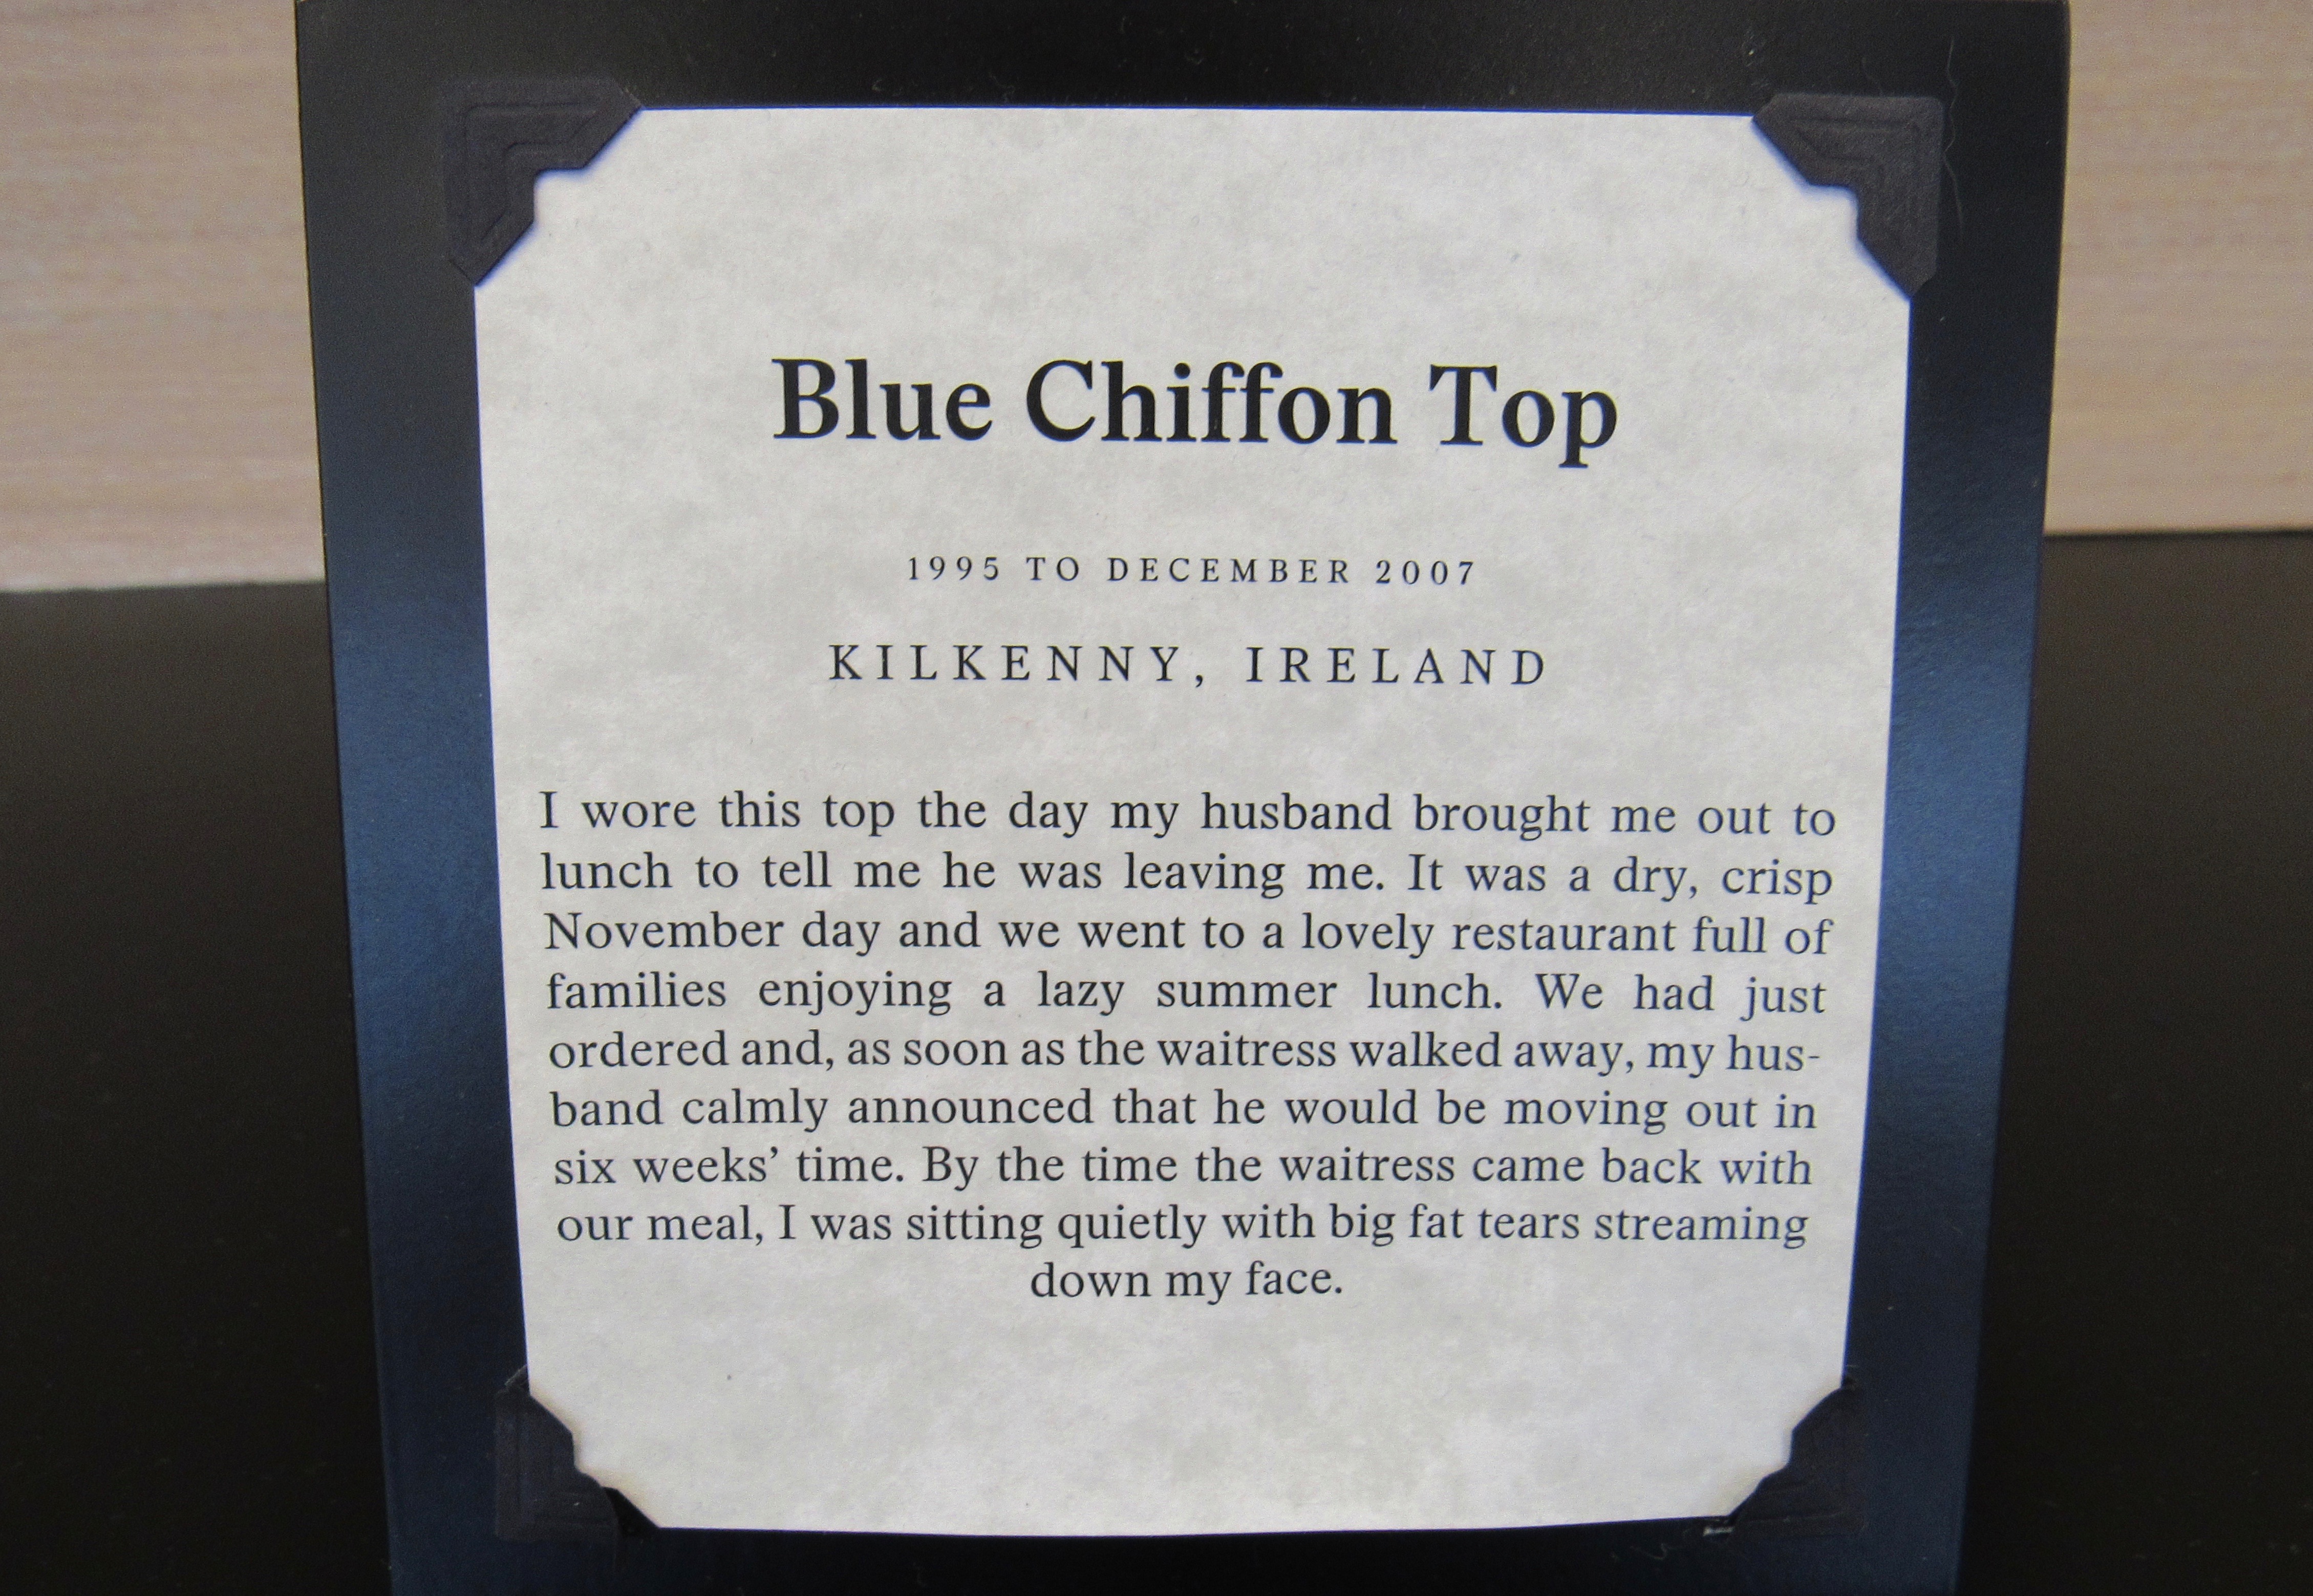 Blue Chiffon Top
1995 TO DECEMBER 2007
KILKENNY, IRELAND
I wore this top the day my husband brought me out to
lunch to tell me he was leaving me. It was a dry, crisp
November day and we went to a lovely restaurant full of
families enjoying a lazy summer lunch. We had just
ordered and, as soon as the waitress walked away, my hus-
band calmly announced that he would be moving out in
six weeks’ time. By the time the waitress came back with
our meal, I was sitting quietly with big fat tears streaming
down my face.